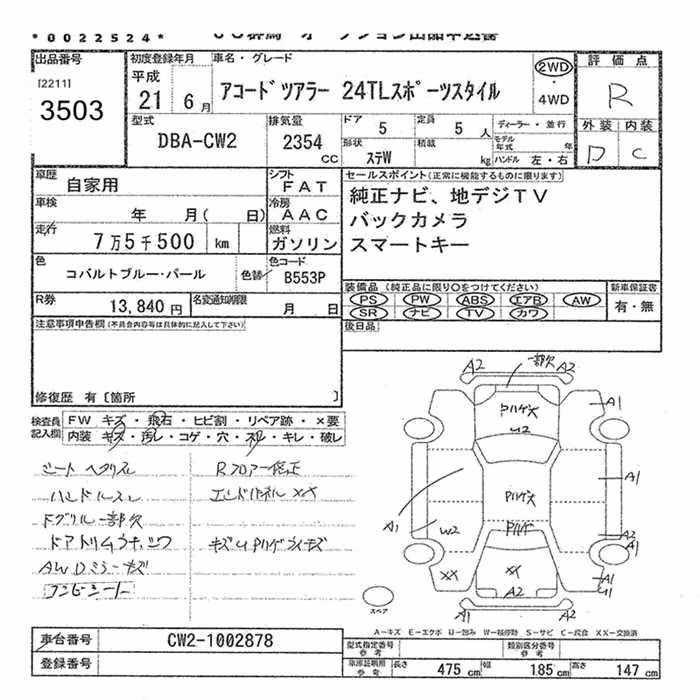 *0022524*
出品番号
[2211]
3503
初度登録年月
平成
21 6月
車名・グレード
アコードツアラー 24TLスポーツスタイル
2WD
・
4WD
評価点
R
型式
DBA-CW2
排気量
2354
cc
ドア 5
定員 5人
形状 ステW
積載 kg
ディーラー・並行
モデル年式 年
ハンドル 左・右
外装 内装
D C
車歴 自家用
シフト FAT
車検 年 月( 日)
冷房 AAC
走行 7万5千500 km
燃料 ガソリン
色 コバルトブルー・パール
色替
色コード B553P
R券 13,840円
名変通知期限 月 日
セールスポイント(正常に機能するものに限ります)
純正ナビ、地デジTV
バックカメラ
スマートキー
装備品(純正品に限り○をつけてください)
PS PW ABS エアB AW
SR ナビ TV カワ
新車保証書
有・無
後日品
注意事項申告欄(不具合内容等は具体的に記入して下さい)
修復歴 有〔箇所 〕
検査員記入欄
FW キズ・飛石・ヒビ割・リペア跡・×要
内装 キズ・汚レ・コゲ・穴・スレ・キレ・破レ
シート ヘタリスレ
ハンドルスレ
Fグリル一部欠
AWDミラーキズ
Rフロアー修正
エンドパネルXX
A2 一部欠 A2
A1
W2
A1
A1
W2
A2
A1
XX
XX
A2
A1
A1 A2
スペア
A-キズ E-エクボ U-凹み W-板修跡 S-サビ C-腐食 XX-交換済
車台番号 CW2-1002878
登録番号
型式指定番号 参考
類別区分番号 参考
車庫証明用 参考
長さ 475cm 幅 185cm 高さ 147cm